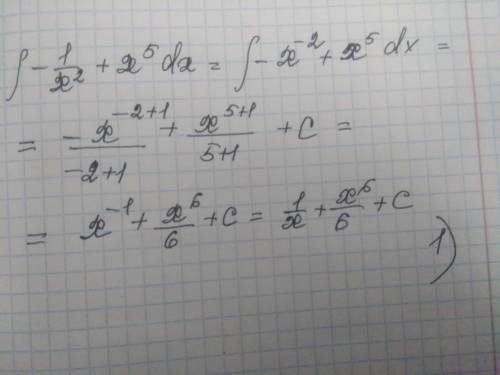 ∫ - 1/x² + x⁵ dx = ∫ - x⁻² + x⁵ dx =
= -x⁻²⁺¹/-2+1 + x⁵⁺¹/5+1 + C =
= x⁻¹ + x⁶/6 + C = 1/x + x⁶/6 + C
1)